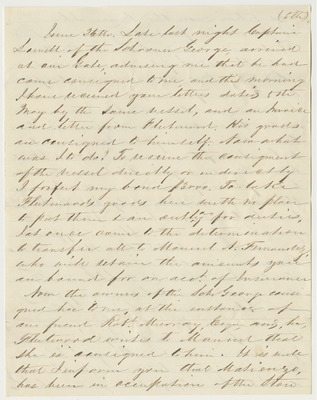 (5th)
June 26th. Late last night Captain
of the Schooner George, arrived
at our Gate, advising me that he had
come consigned to me and this morning
I have received your letters dated 10th
May by the same vessel, and an Invoice
and letter from Fleetwood. His goods
are consigned to himself. Now what
was I to do? To receive the consignment
of the vessel directly or indirectly
I forfeit my bond $5000. To take
Fleetwood's goods here with no place
to put them & an for duties,
I at once came to the determination
to transfer all to Manuel A. Fernandez
who will retain the amounts you
are bound for on acct. of Insurance
Now the owners of the Sch George consigned
her to me, at the instance of
our friend Robt. Murray, Esqr. and, he,
Fleetwood writes to Manuel that
she is consigned to him. It is well
that I inform you that Matienzo,
has been in occupation of the Store